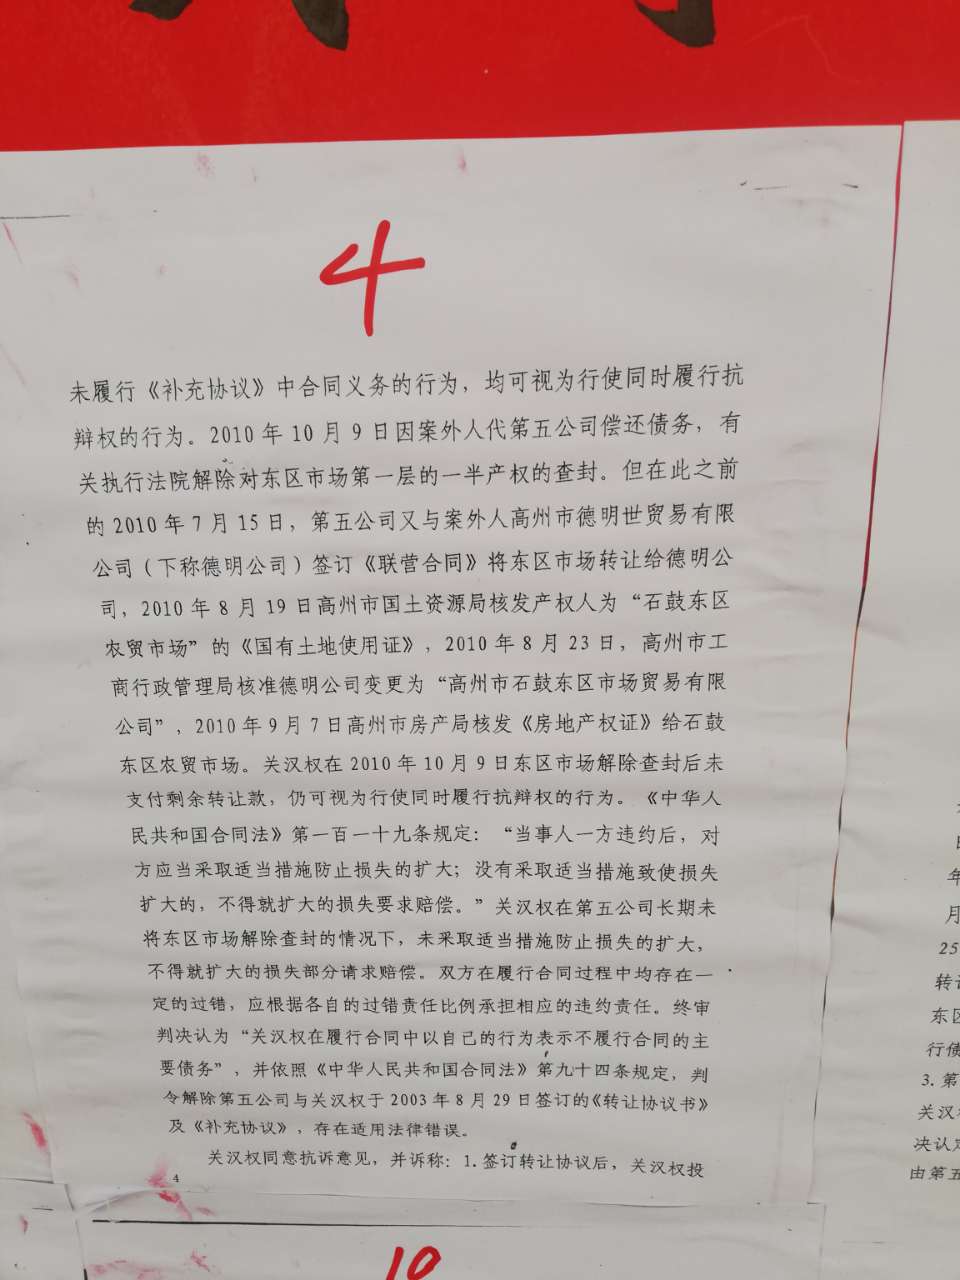 4
未履行《补充协议》中合同义务的行为，均可视为行使同时履行抗
辩权的行为。2010 年 10 月 9 日因案外人代第五公司偿还债务，有
关执行法院解除对东区市场第一层的一半产权的查封。但在此之前
的 2010 年 7 月 15 日，第五公司又与案外人高州市德明世贸易有限
公司（下称德明公司）签订《联营合同》将东区市场转让给德明公
司，2010 年 8 月 19 日高州市国土资源局核发产权人为“石鼓东区
农贸市场”的《国有土地使用证》，2010 年 8 月 23 日，高州市工
商行政管理局核准德明公司变更为“高州市石鼓东区市场贸易有限
公司”，2010 年 9 月 7 日高州市房产局核发《房地产权证》给石鼓
东区农贸市场。关汉权在 2010 年 10 月 9 日东区市场解除查封后未
支付剩余转让款，仍可视为行使同时履行抗辩权的行为。《中华人
民共和国合同法》第一百一十九条规定：“当事人一方违约后，对
方应当采取适当措施防止损失的扩大；没有采取适当措施致使损失
扩大的，不得就扩大的损失要求赔偿。”关汉权在第五公司长期未
将东区市场解除查封的情况下，未采取适当措施防止损失的扩大，
不得就扩大的损失部分请求赔偿。双方在履行合同过程中均存在一
定的过错，应根据各自的过错责任比例承担相应的违约责任。终审
判决认为“关汉权在履行合同中以自己的行为表示不履行合同的主
要债务”，并依照《中华人民共和国合同法》第九十四条规定，判
令解除第五公司与关汉权于 2003 年 8 月 29 日签订的《转让协议书》
及《补充协议》，存在适用法律错误。
关汉权同意抗诉意见，并诉称：1.签订转让协议后，关汉权投
4
10
年
月
25
转让
东区
行债
3.第
关汉
决认定
由第五